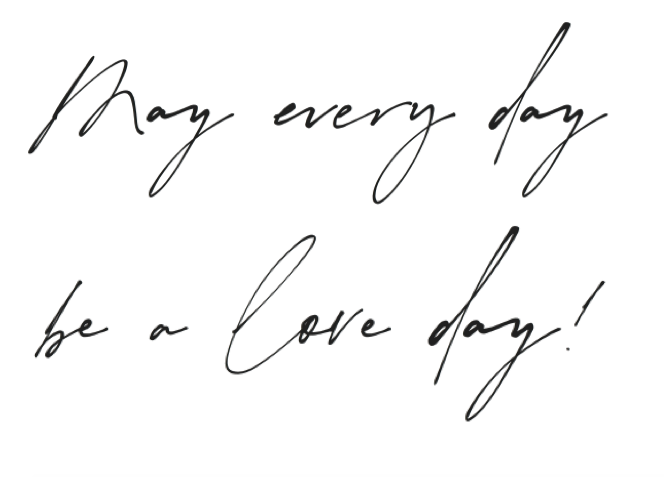 May every day
be a love day!